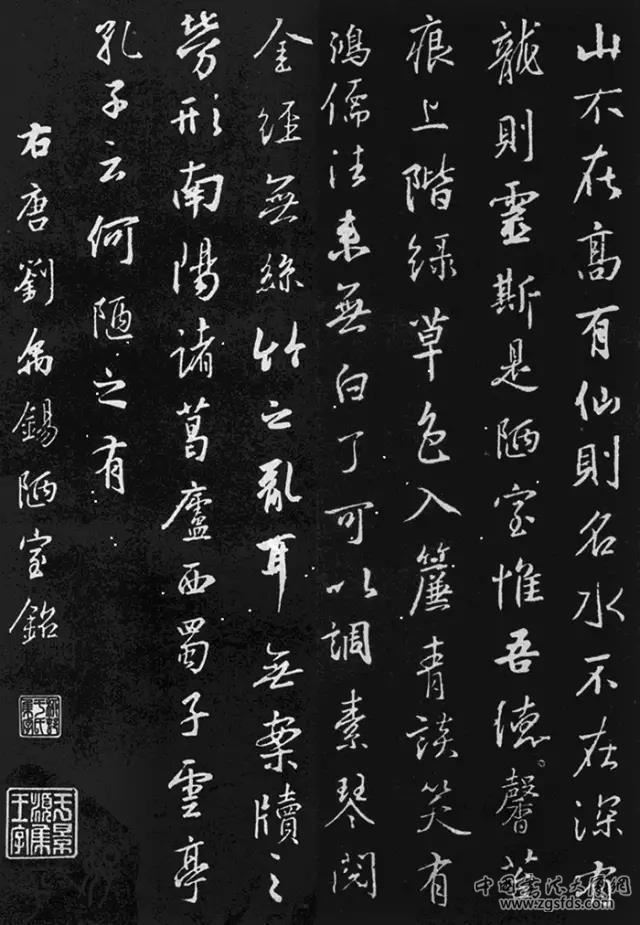 山不在高有仙則名水不在深有
龍則靈斯是陋室惟吾德馨苔
痕上階綠草色入簾青談笑有
鴻儒往來無白丁可以調素琴閱
金經無絲竹之亂耳無案牘之
勞形南陽諸葛廬西蜀子雲亭
孔子云何陋之有
右唐劉禹錫陋室銘
www.zgsfds.com